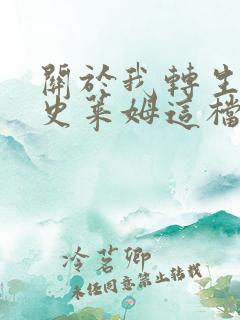 關於我轉生
史萊姆這檔
冷茗卿
未任同意禁止转载